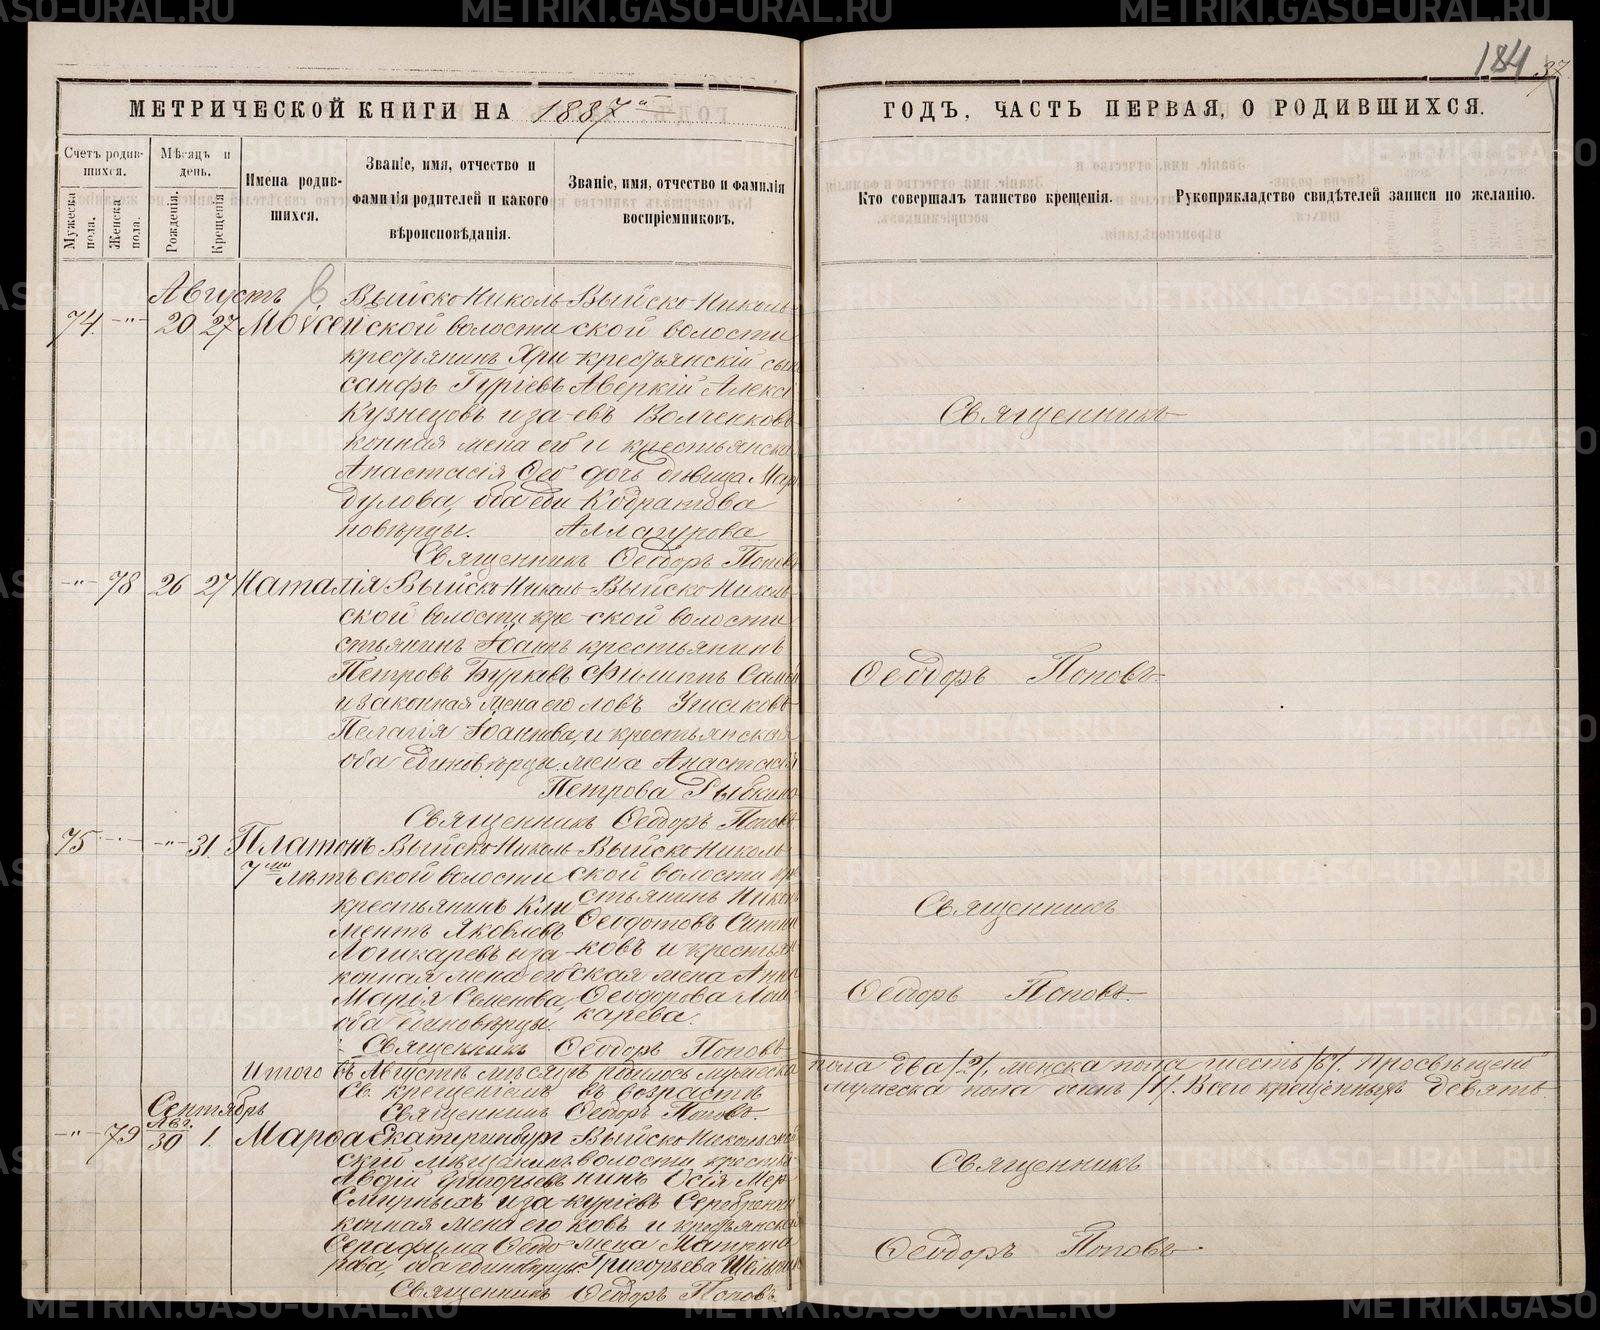 184
37
МЕТРИЧЕСКОЙ КНИГИ НА 1887й
ГОДЪ, ЧАСТЬ ПЕРВАЯ, О РОДИВШИХСЯ.
Счетъ родив-
шихся.
Мужеска
пола.
Женска
пола.
Мѣсяцъ и
день.
Рожденія.
Крещенія
Имена родив-
шихся.
Званіе, имя, отчество и
фамилія родителей и какого
вѣроисповѣданія.
Званіе, имя, отчество и фамилія
воспріемниковъ.
Кто совершалъ таинство крещенія.
Рукоприкладство свидѣтелей записи по желанію.
Августъ
74 -"- 20 27 Моѵсей
Выйско-Николь-
ской волости
крестьянинъ Хри
санфъ Гуріевъ
Кузнецовъ и за-
конная жена его
Анастасія Ѳео
дулова, оба еди
новѣрцы.
Выйско-Николь-
ской волости
крестьянскій сынъ
Аверкій Алексѣ
евъ Волченковъ
и крестьянская
дочь дѣвица Мар
Кодратова
Аллаярова
Священникъ Ѳеодоръ Поповъ
Священникъ
Ѳеодоръ Поповъ
-"- 78 26 27 Наталія
Выйско-Николь-
ской волости кре-
стьянинъ Іоаннъ
Петровъ Бурковъ
и законная жена его
Пелагія Іоаннова,
оба единовѣрцы
Выйско-Николь-
ской волости
крестьянинъ
Филиппъ Самой
ловъ Ушаковъ
и крестьянская
жена Анастасія
Петрова Рыбкина
Священникъ Ѳеодоръ Поповъ
75 -"- -"- 31. Платонъ
7ми лѣтъ
Выйско-Николь-
ской волости
крестьянинъ Кли
ментъ Яковлевъ
Лошкаревъ и за-
конная жена его
Марія Семенова,
оба единовѣрцы.
Выйско-Николь-
ской волости кре
стьянинъ Никонъ
Ѳеодотовъ Ситни
ковъ и крестьян
ская жена Анна
Ѳеодорова Лош-
карева.
Священникъ Ѳеодоръ Поповъ
Священникъ
Ѳеодоръ Поповъ.
Итого въ Августѣ мѣсяцѣ родилось мужеска пола два /2/, женска пола шесть /6/. Просвѣщено
Св. крещеніемъ въ возрастѣ мужеска пола одинъ /1/. Всего крещенныхъ девять.
Священникъ Ѳеодоръ Поповъ.
Сентябрь
-"- 79 Авг. 30 1. Марѳа
Екатеринбург
скій мѣщанинъ
Авдій Григорьевъ
Смирныхъ и за-
конная жена его
Серафима Ѳеодо-
рова, оба единовѣрцы.
Выйско-Никольской
волости крестья
нинъ Осія Мер-
куріевъ Серебрянни
ковъ и крестьянская
жена Матрона
Григорьева
Священникъ Ѳеодоръ Поповъ.
Священникъ
Ѳеодоръ Поповъ
METRIKI.GASO-URAL.RU